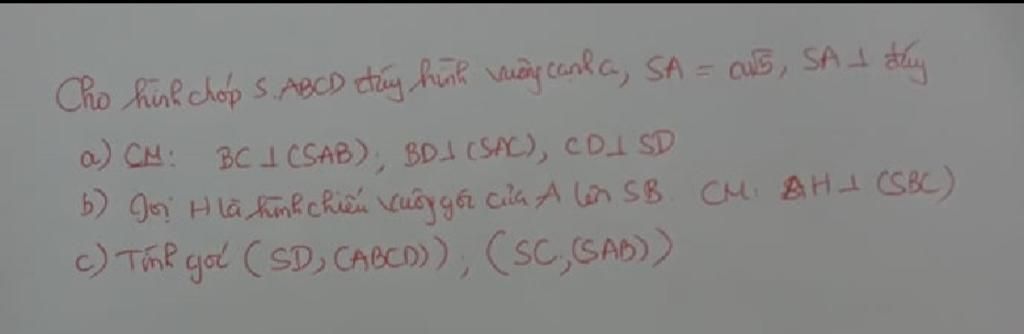 Cho hình chóp S.ABCD đáy hình vuông cạnh a, SA = a√5, SA ⊥ đáy
a) CM: BC ⊥ (SAB); BD ⊥ (SAC), CD ⊥ SD
b) gọi H là hình chiếu vuông góc của A lên SB. CM: AH ⊥ (SBC)
c) Tính góc (SD, (ABCD)), (SC, (SAB))